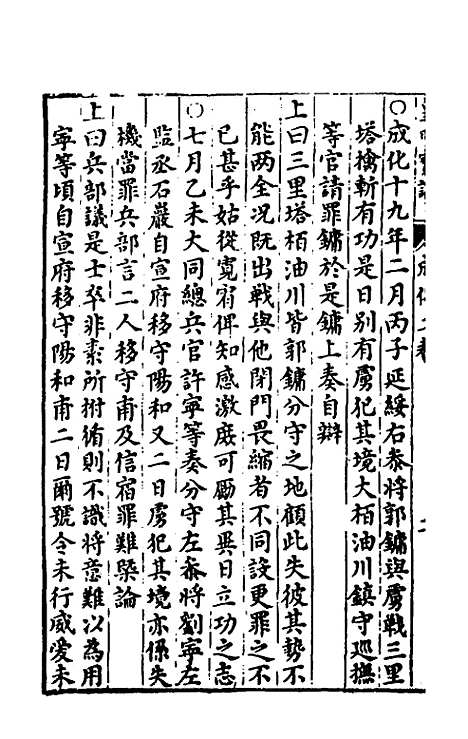 ○成化十九年二月丙子延綏右叅將郭鏞與虜戰三里
塔擒斬有功是日別有虜犯其境大栢油川鎮守巡撫
等官請罪鏞於是鏞上奏自辯
上曰三里塔栢油川皆郭鏞分守之地顧此失彼其勢不
能两全况既出戰與他閉門畏縮者不同設更罪之不
已甚乎姑從寬宥俾知感激庶可勵其異日立功之志
○七月乙未大同總兵官許寧等奏分守左叅將劉寧左
監丞石巖自宣府移守陽和又二日虜犯其境亦係失
機當罪兵部言二人移守甫及信宿罪難槩論
上曰兵部議是士卒非素所拊循則不識將意難以為用
寧等頃自宣府移守陽和甫二日爾號令未行威愛未